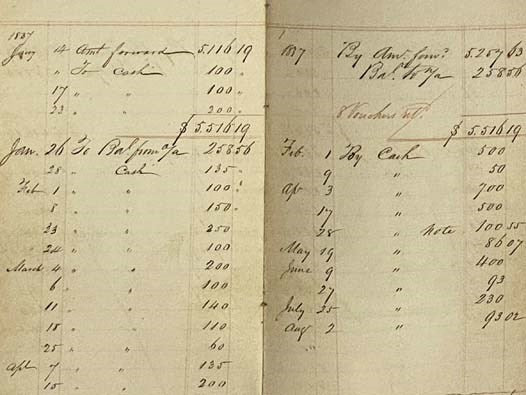 1837
Jany 14 Amt forward 5.116 19
" To Cash 100 "
17 " " 100 "
23 " " 200 "
$ 5.516 19
Jan. 26 To Bal from a/a 258 56
28 " Cash 135 "
Feb 1 " " 100 "
8 " " 150 "
23 " " 250
24 " " 100
March 4 " " 200
6 " " 100
11 " " 140
18 " " 110
25 " " 60
Apl 7 " " 135
15 " " 200
1
1837 By Amt forwd 5.257 63
Bal. To a/a 258 56
8 Vouchers
$ 5.516 19
Feb. 1 By Cash 500
9 " 50
Ap 3 " 700
17 " 500
28 " Note 100 55
May 19 " 86 07
June 9 " 400
27 " 93
July 25 " 230
Aug 2 " 93 02